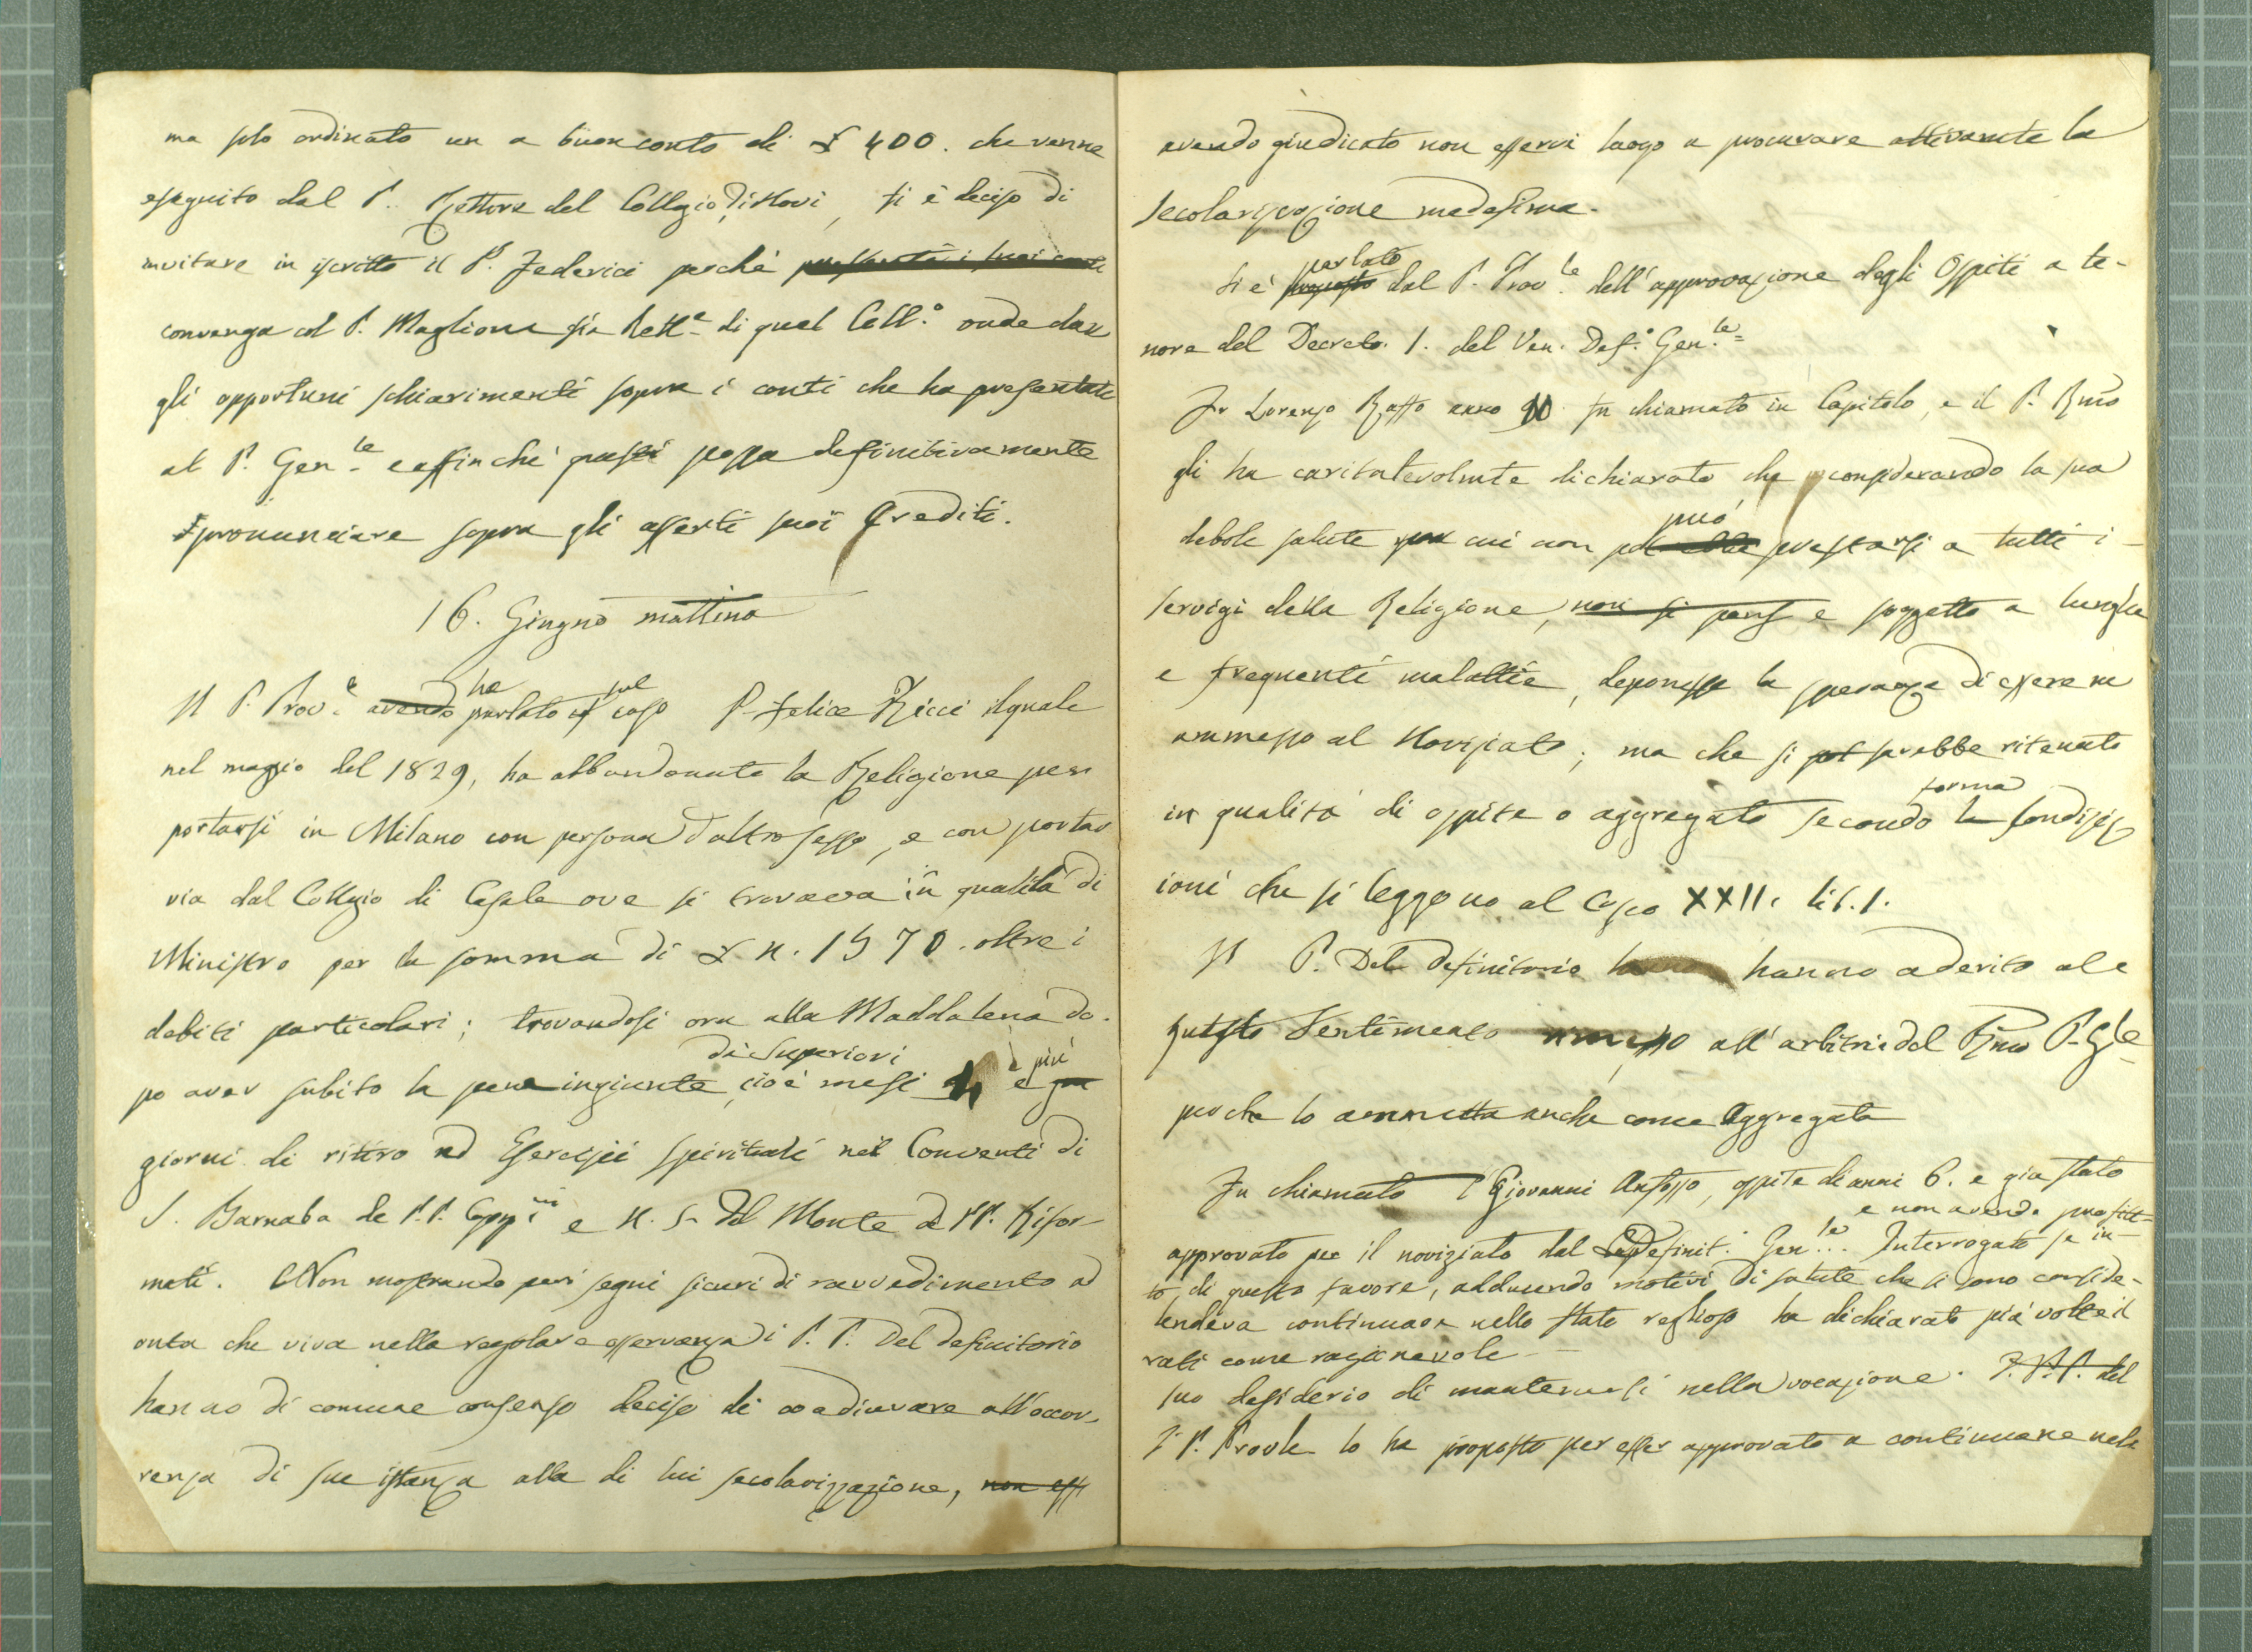 ma solo ordinato un a buon conto di £ 400. che venne
eseguito dal P. Rettore del Collegio di Novi, si è deciso di
invitare in iscritto il P. Federici perchè presenti i suoi conti
convenga col P. Maglione già Rett.e di quel Coll.o onde dare
gli opportuni schiarimenti sopra i conti che ha presentati
al P. Gen.le e affinchè questi possa definitivamente
pronunciare sopra gli asserti suoi Crediti.
16. Giugno mattina
Il P. Prov.e avendo ha parlato sul caso P. Felice Ricci il quale
nel maggio del 1829, ha abbandonato la Religione per
portarsi in Milano con persona d'altro sesso, e con portar
via dal Collegio di Casale ove si trovava in qualità di
Ministro per la somma di £ n. 1570. oltre i
debiti particolari; trovandosi ora alla Maddalena do-
po aver subito la pena ingiunta da Superiori, cioè mesi 4 e più
giorni di ritiro ed Esercizii spirituali nei Conventi di
S. Barnaba de P.P. Capp.ini e N. S. del Monte de PP. Rifor-
mati. Non mostrando però segni sicuri di ravvedimento ad
onta che viva nella regolare osservanza i P. P. Del Definitorio
hanno di comune consenso deciso di coadiuvare all'occor-
renza di sue istanza alla di lui secolarizzazione, non ess
avendo giudicato non esservi luogo a procurare attivamente la
secolarizzazione medesima.
Si è proposto parlato dal P. Prov.le dell'approvazione degli Ospiti a te-
nore del Decreto 1. del Ven. Def.o Gen.le
Fr Lorenzo Raffo anno fu chiamato in Capitolo, e il P. Rmo
gli ha caritatevolmte dichiarato che considerando la sua
debole salute per cui non può prestarsi a tutti i
servigi della Religione, non si pens e soggetto a lunghe
e frequenti malattie, deponesse la speranza di essere
ammesso al Noviziato; ma che si sarebbe ritenuto
in qualità di ospite o aggregato secondo la forma condiziz
ioni che si leggono al Capo XXII. lib. 1.
Il P. Del Definitorio hanno aderito al
questo Sentimento all'arbitrio del Rmo P. Gle
perche lo ammetta anche come Aggregato
Fu chiamato Giovanni Anfosso, ospite di anni 6. e gia stato
e non avendo profitt-
approvato per il noviziato dal Definit.o Gen.le. Interrogato se in-
to, di questo favore, adducendo motivi di salute che si sono conside-
tendeva continuare nello stato religioso ha dichiarato più volte il
rati come ragionevole
suo desiderio di mantenersi nella vocazione. I. P.P. del
Il P. Provle lo ha proposto per esser approvato a continuare nel